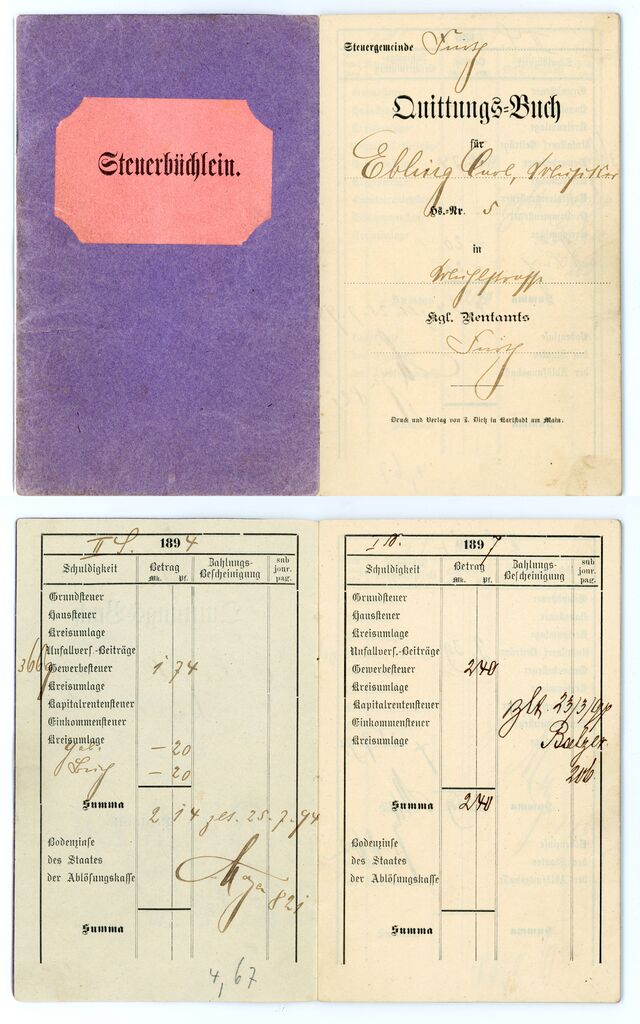 Steuerbüchlein.
Steuergemeinde Fürth
Quittungs-Buch
für
Ebling Carl, Musiker
Hs.-Nr. 5
in
Mühlstrasse
Kgl. Rentamts
Fürth
Druck und Verlag von J. Dietz in Karlstadt am Main.
II 1894
Schuldigkeit Betrag Zahlungs-Bescheinigung sub jour. pag.
Mk. Pf.
Grundsteuer
Haussteuer
Kreisumlage
Unfallvers.-Beiträge
Gewerbesteuer 1 74
Kreisumlage
Kapitalrentensteuer
Einkommensteuer
Kreisumlage
– 20
– 20
Summa 2 14 25.7.94
Bodenzinse
des Staates
der Ablösungskasse
821
Summa
4,67
1897
Schuldigkeit Betrag Zahlungs-Bescheinigung sub jour. pag.
Mk. Pf.
Grundsteuer
Haussteuer
Kreisumlage
Unfallvers.-Beiträge
Gewerbesteuer 2 40
Kreisumlage
Kapitalrentensteuer bzlt. 23/3/97
Einkommensteuer
Kreisumlage
206
Summa 2 40
Bodenzinse
des Staates
der Ablösungskasse
Summa